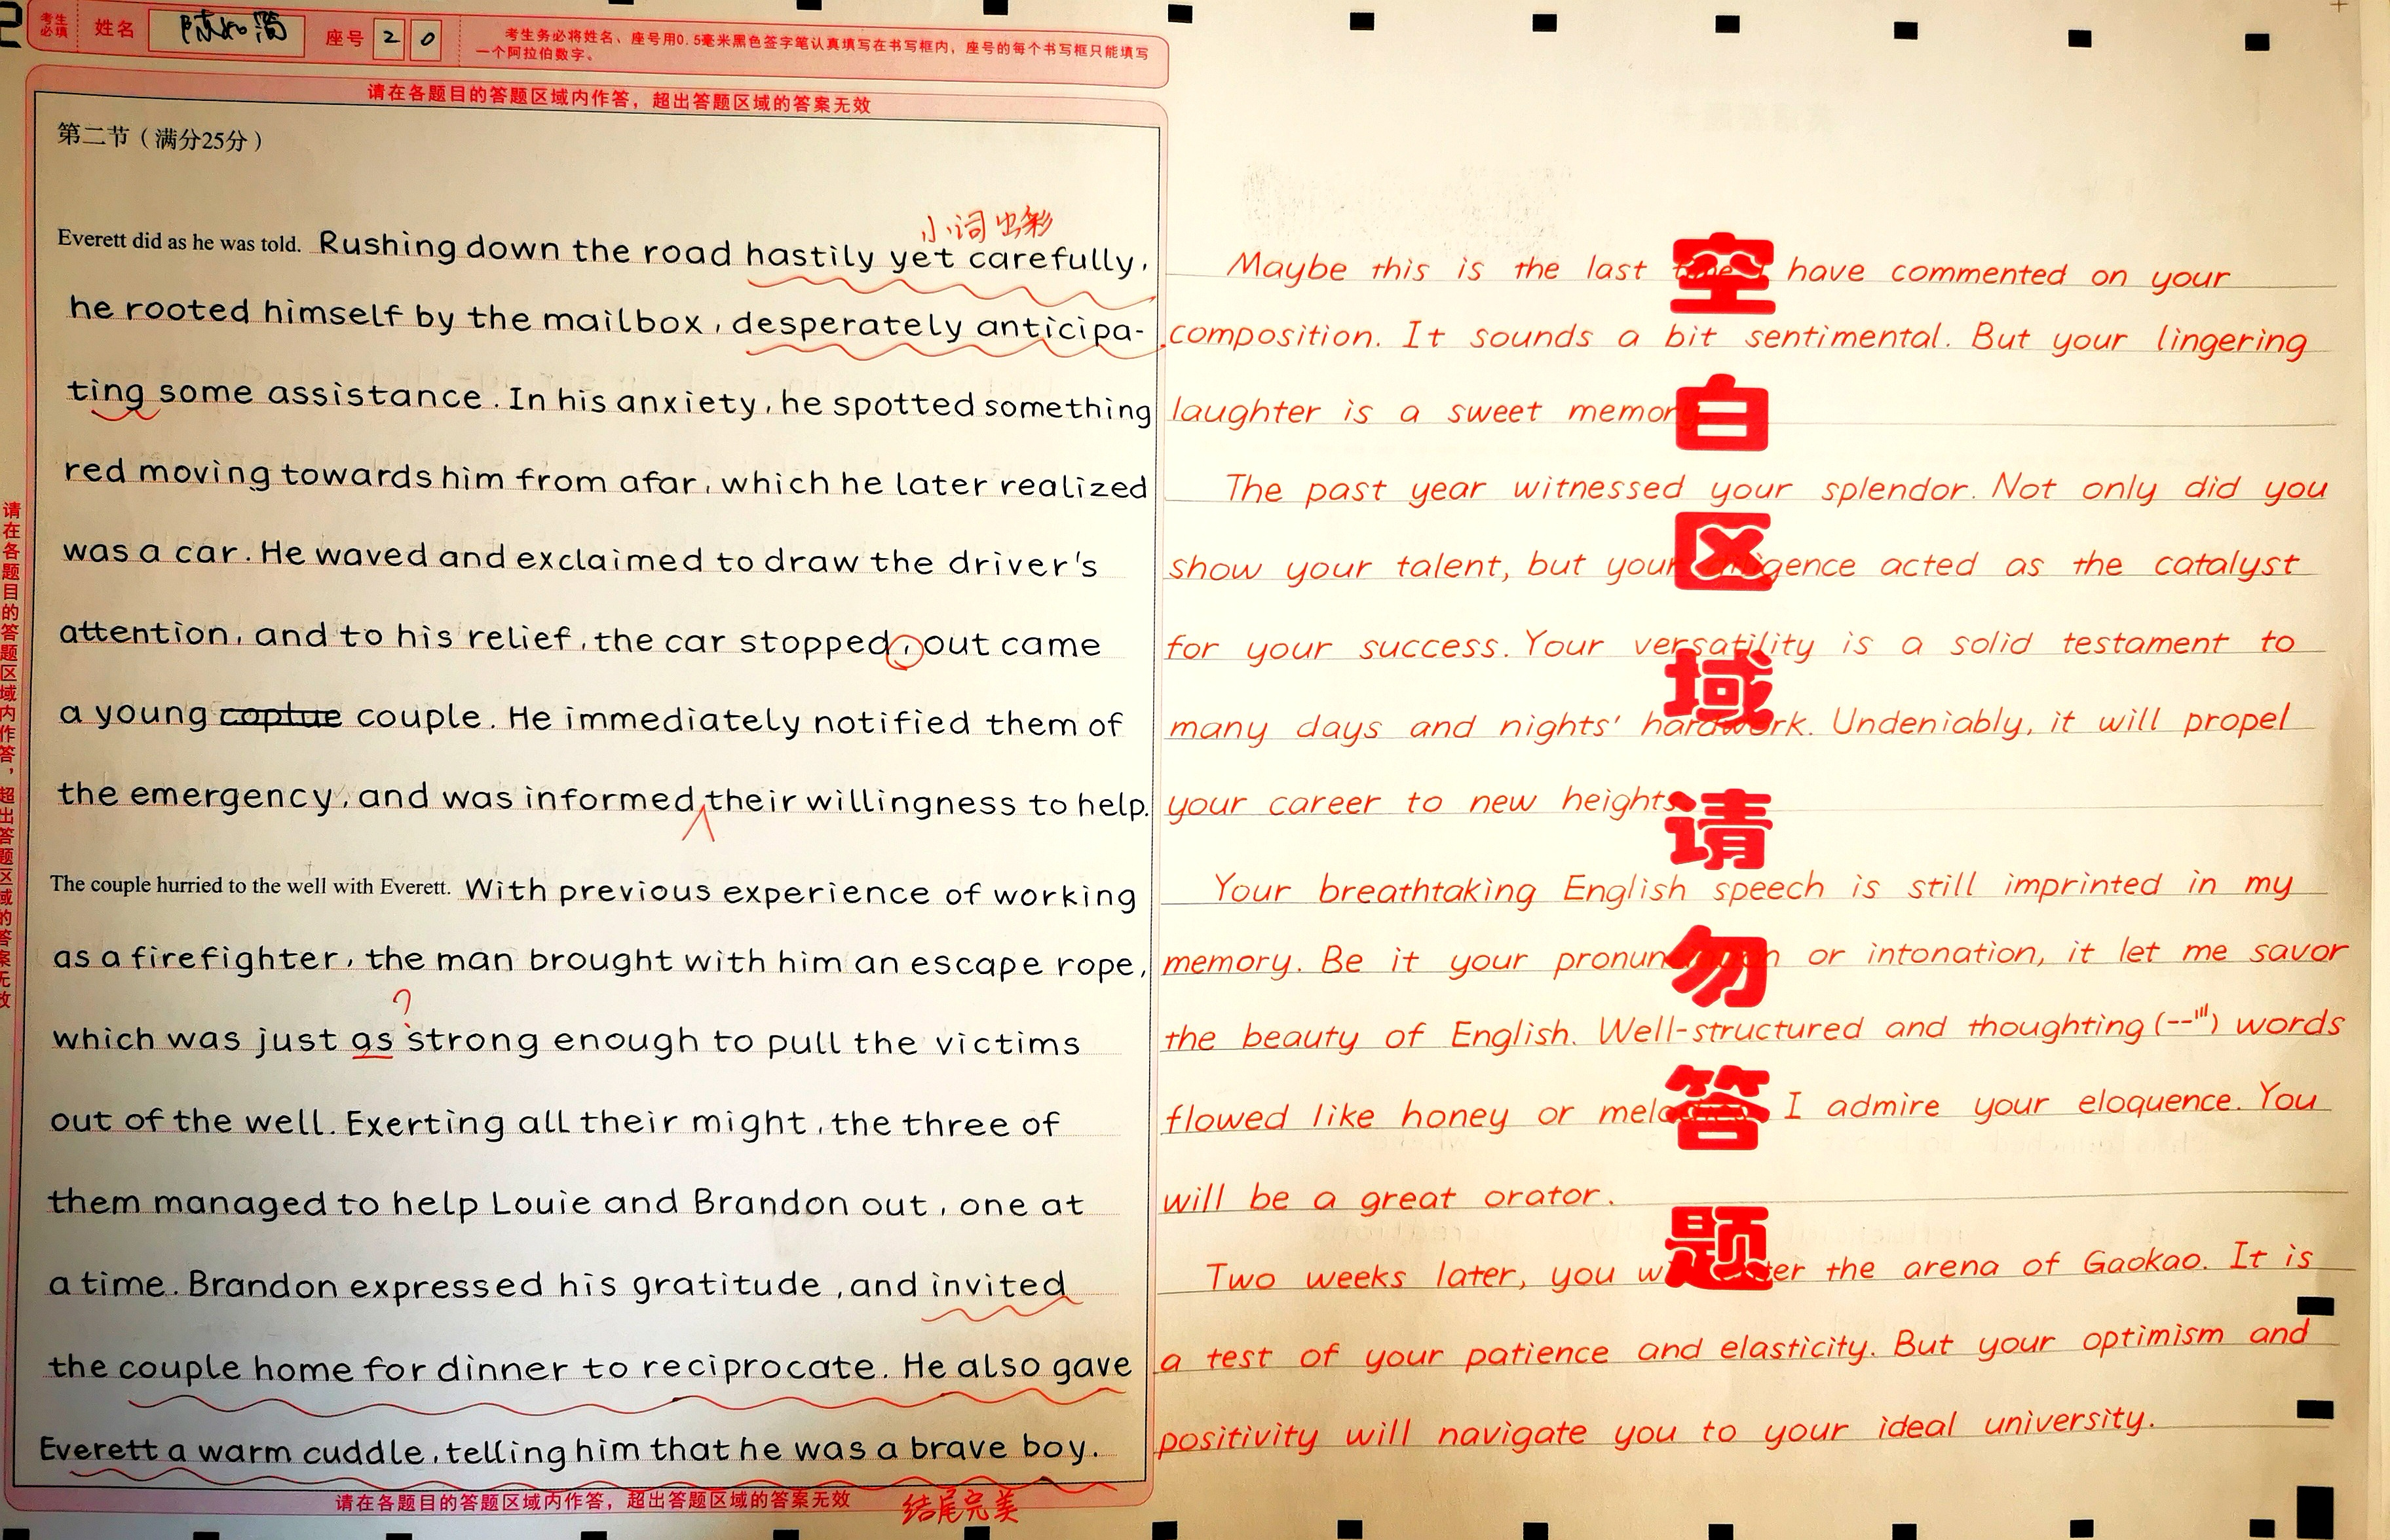 考生必填
姓名
座号 2 0
考生务必将姓名、座号用0.5毫米黑色签字笔认真填写在书写框内，座号的每个书写框只能填写
一个阿拉伯数字。
请在各题目的答题区域内作答，超出答题区域的答案无效
第二节（满分25分）
小词出彩
Everett did as he was told. Rushing down the road hastily yet carefully,
he rooted himself by the mailbox, desperately anticipa-
ting some assistance. In his anxiety, he spotted something
red moving towards him from afar, which he later realized
was a car. He waved and exclaimed to draw the driver's
attention, and to his relief, the car stopped, out came
a young couple. He immediately notified them of
the emergency, and was informed their willingness to help.
The couple hurried to the well with Everett. With previous experience of working
as a firefighter, the man brought with him an escape rope,
?
which was just as strong enough to pull the victims
out of the well. Exerting all their might, the three of
them managed to help Louie and Brandon out, one at
a time. Brandon expressed his gratitude, and invited
the couple home for dinner to reciprocate. He also gave
Everett a warm cuddle, telling him that he was a brave boy.
请在各题目的答题区域内作答，超出答题区域的答案无效
结尾完美
请在各题目的答题区域内作答，超出答题区域的答案无效
Maybe this is the last time I have commented on your
composition. It sounds a bit sentimental. But your lingering
laughter is a sweet memory
The past year witnessed your splendor. Not only did you
show your talent, but your diligence acted as the catalyst
for your success. Your versatility is a solid testament to
many days and nights' hardwork. Undeniably, it will propel
your career to new heights
Your breathtaking English speech is still imprinted in my
memory. Be it your or intonation, it let me savor
the beauty of English. Well-structured and thoughting (--'''') words
flowed like honey or I admire your eloquence. You
will be a great orator.
Two weeks later, you will enter the arena of Gaokao. It is
a test of your patience and elasticity. But your optimism and
positivity will navigate you to your ideal university.
空白区域请勿答题